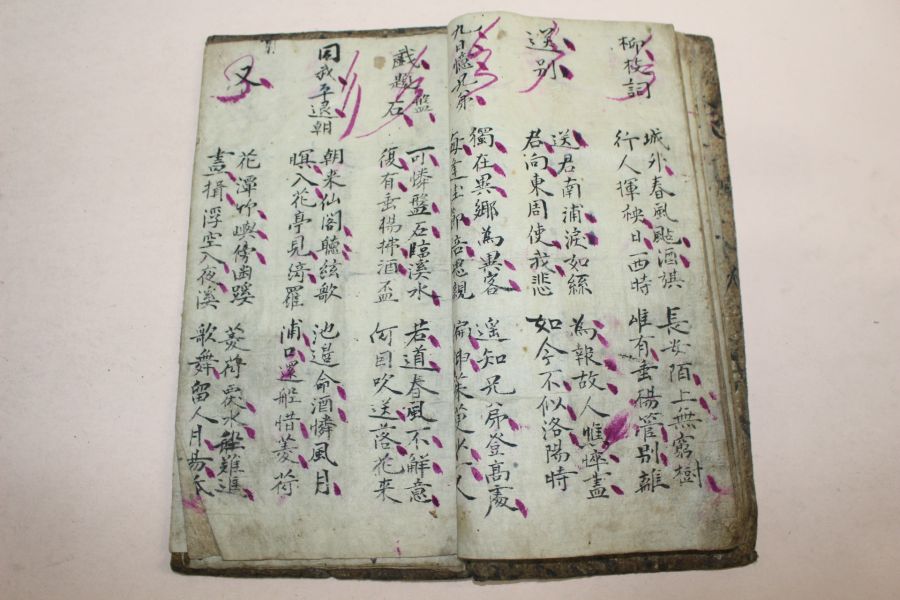 柳枝詞
城外春風颭酒淇
行人揮袂日西時
長安陌上無窮樹
唯有垂楊管別離
送别
送君南浦淚如絲
君向東周使我悲
爲報故人憔悴盡
如今不似洛陽時
九日憶兄弟
獨在異鄉爲異客
每逢佳節倍思親
遥知兄弟登高處
茱萸少一人
戲題盤石
可憐盤石臨溪水
復有垂楊拂酒盃
若道春風不解意
何因吹送落花來
同武平遠朝
朝来仙閣聽絃歌
暝入花亭見綺羅
池邉命酒憐風月
浦口還船惜菱荷
又
花潭竹嶼傍幽蹊
畫楫浮空入夜溪
菱荷覆水船難進
歌舞留人月易低